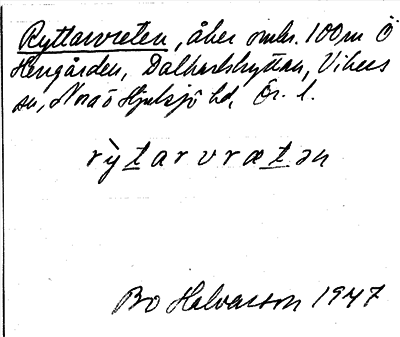 Ryttarvreten, åker omkr. 100 m Ö
Herrgården, Dalkarlshyttan, Vikers
sn, Nora o Hjulsjö hd, Ör. l.
rỳtarvrætən
Bo Halvarson 1947